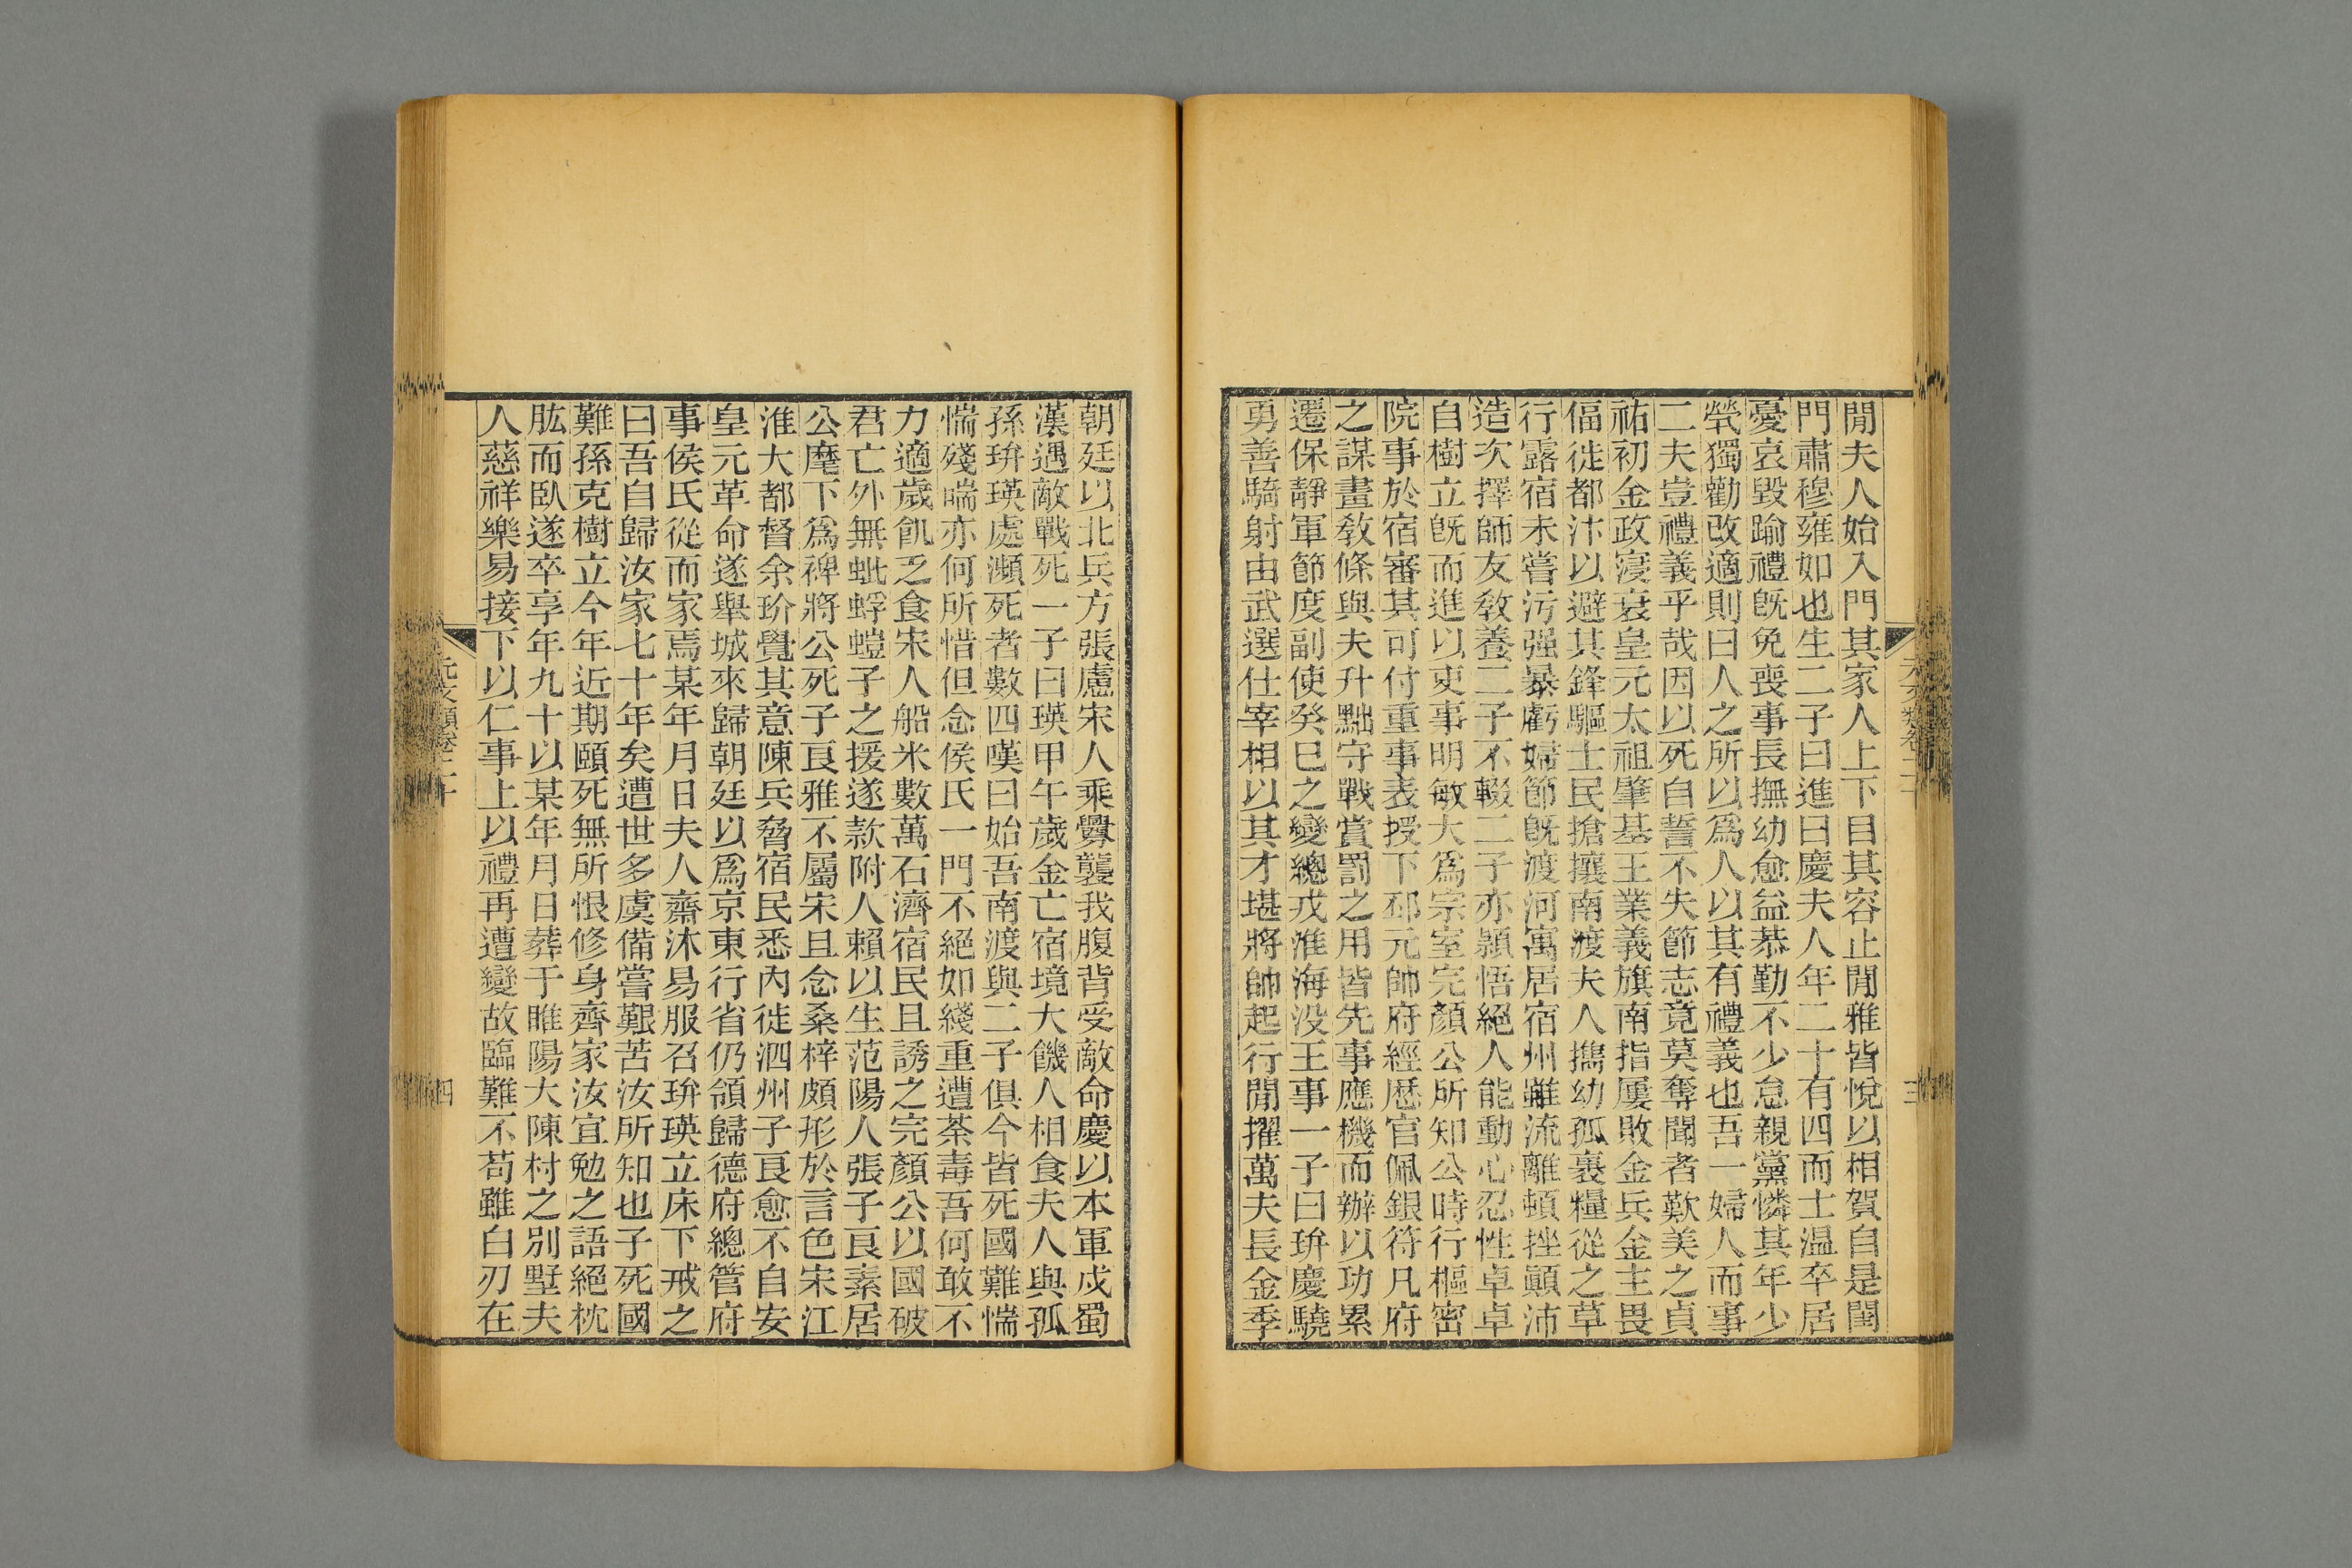 閒夫人始入門其家人上下目其容止閒雅皆悅以相賀自是閨
門肅穆雍如也生二子曰進曰慶夫人年二十有四而士温卒居
憂哀毀踰禮旣免喪事長撫幼愈益恭勤不少怠親黨憐其年少
煢獨勸改適則曰人之所以爲人以其有禮義也吾一婦人而事
二夫豈禮義乎哉因以死自誓不失節志竟莫奪聞者歎美之貞
祐初金政寖衰皇元太祖肇基王業義旗南指屢敗金兵金主畏
偪徙都汴以避其鋒驅士民搶攘南渡夫人擕幼孤裹糧從之草
行露宿未嘗污强暴虧婦節旣渡河寓居宿州雖流離頓挫顚沛
造次擇師友敎養二子不輟二子亦潁悟絕人能動心忍性卓卓
自樹立旣而進以吏事明敏大爲宗室完顏公所知公時行樞密
院事於宿審其可付重事表授下邳元帥府經歷官佩銀符凡府
之謀畫敎條與夫升黜守戰賞罰之用皆先事應機而辦以功累
遷保靜軍節度副使癸巳之變總戎淮海没王事一子曰琲慶驍
勇善騎射由武選仕宰相以其才堪將帥起行閒擢萬夫長金季
朝廷以北兵方張慮宋人乘釁襲我腹背受敵命慶以本軍戍蜀
漢遇敵戰死一子曰瑛甲午歲金亡宿境大饑人相食夫人與孤
孫琲瑛處瀕死者數四嘆曰始吾南渡與二子俱今皆死國難惴
惴殘喘亦何所惜但念侯氏一門不絕如綫重遭荼毒吾何敢不
力適歲飢乏食宋人船米數萬石濟宿民且誘之完顏公以國破
君亡外無蚍蜉螘子之援遂款附人賴以生范陽人張子良素居
公麾下爲裨將公死子良雅不屬宋且念桑梓頗形於言色宋江
淮大都督余玠覺其意陳兵脅宿民悉内徙泗州子良愈不自安
皇元革命遂舉城來歸朝廷以爲京東行省仍領歸德府總管府
事侯氏從而家焉某年月日夫人齋沐易服召琲瑛立床下戒之
曰吾自歸汝家七十年矣遭世多虞備嘗艱苦汝所知也子死國
難孫克樹立今年近期頤死無所恨修身齊家汝宜勉之語絕枕
肱而臥遂卒享年九十以某年月日葬于睢陽大陳村之別墅夫
人慈祥樂易接下以仁事上以禮再遭變故臨難不苟雖白刃在
元文類卷二十
四